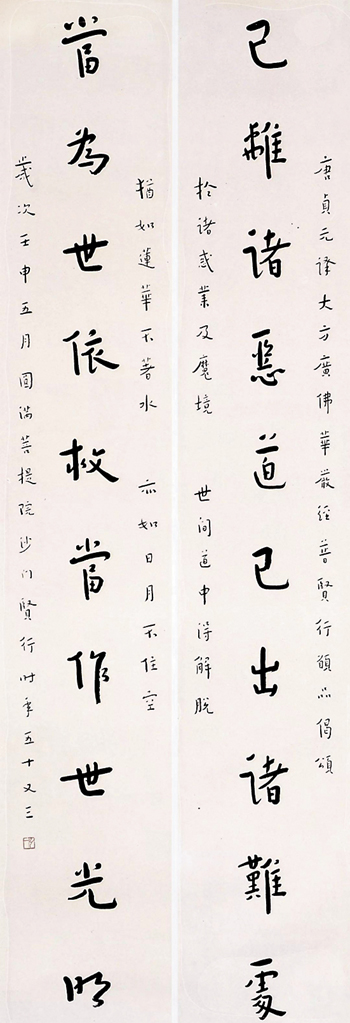 唐貞元譯大方廣佛華嚴經普賢行願品偈頌
已離諸惡道已出諸難處
於諸惑業及魔境　世間道中得解脫
猶如蓮華不著水　亦如日月不住空
當為世依救當作世光明
歲次壬申五月圓滿菩提院沙門賢行時年五十又三